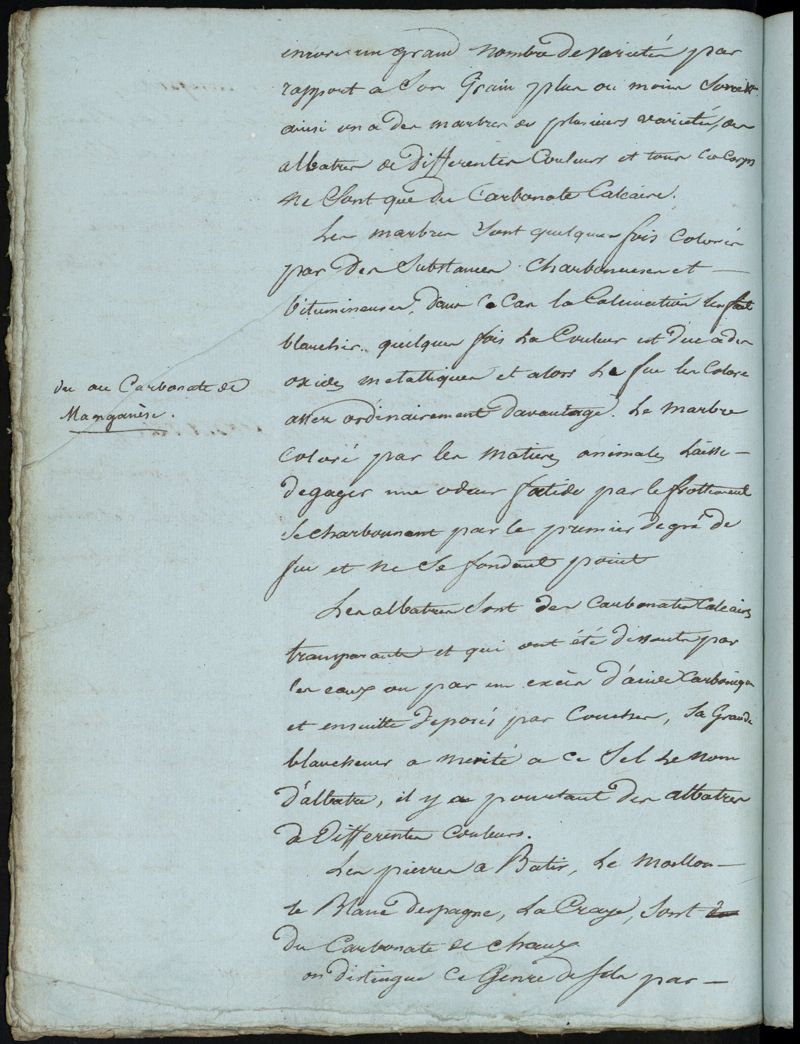 encore un grand nombre de varietés par
rapport a Son Grain plus ou moins Serré et
ainsi on a des marbres de plusieurs varietés, des
albatres de differentes Couleurs et tous ces Corps
ne Sont que du Carbonate Calcaire.
Les marbres Sont quelques fois Colorés
par des Substances Charboneuses et —
bitumineuses, dans ce Cas la Calcination les fait
blanchir. quelques fois la Couleur est Due a des
oxides metalliques et alors le feu les Colore
assez ordinairement davantage. Le marbre
Coloré par les matieres animales laisse
degager une odeur fœtide par le frottement
Se charbonnent par le premier degré de
feu et ne Se fondent point
Les albatres Sont des Carbonates Calcaires
transparants et qui ont été dissouts par
les eaux ou par un excès d'acide Carbonique
et ensuitte deposés par Couches, Sa Grande
blancheur a merité a ce Sel le nom
d'albatre, il y a pourtant des albatres
de differentes Couleurs.
Les pierres a Batir, le Moellon —
le Blanc despagne, La Craye, Sont
du Carbonate de chaux
on distingue ce Genre de Sels par —
du au Carbonate de
Manganèse.